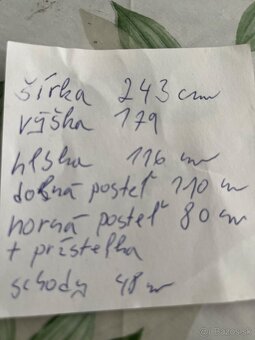 šírka 243 cm
výška 179
hĺbka 116 cm
dolná posteľ 110 cm
horná posteľ 80 cm
+ prístelka
schody 48 cm